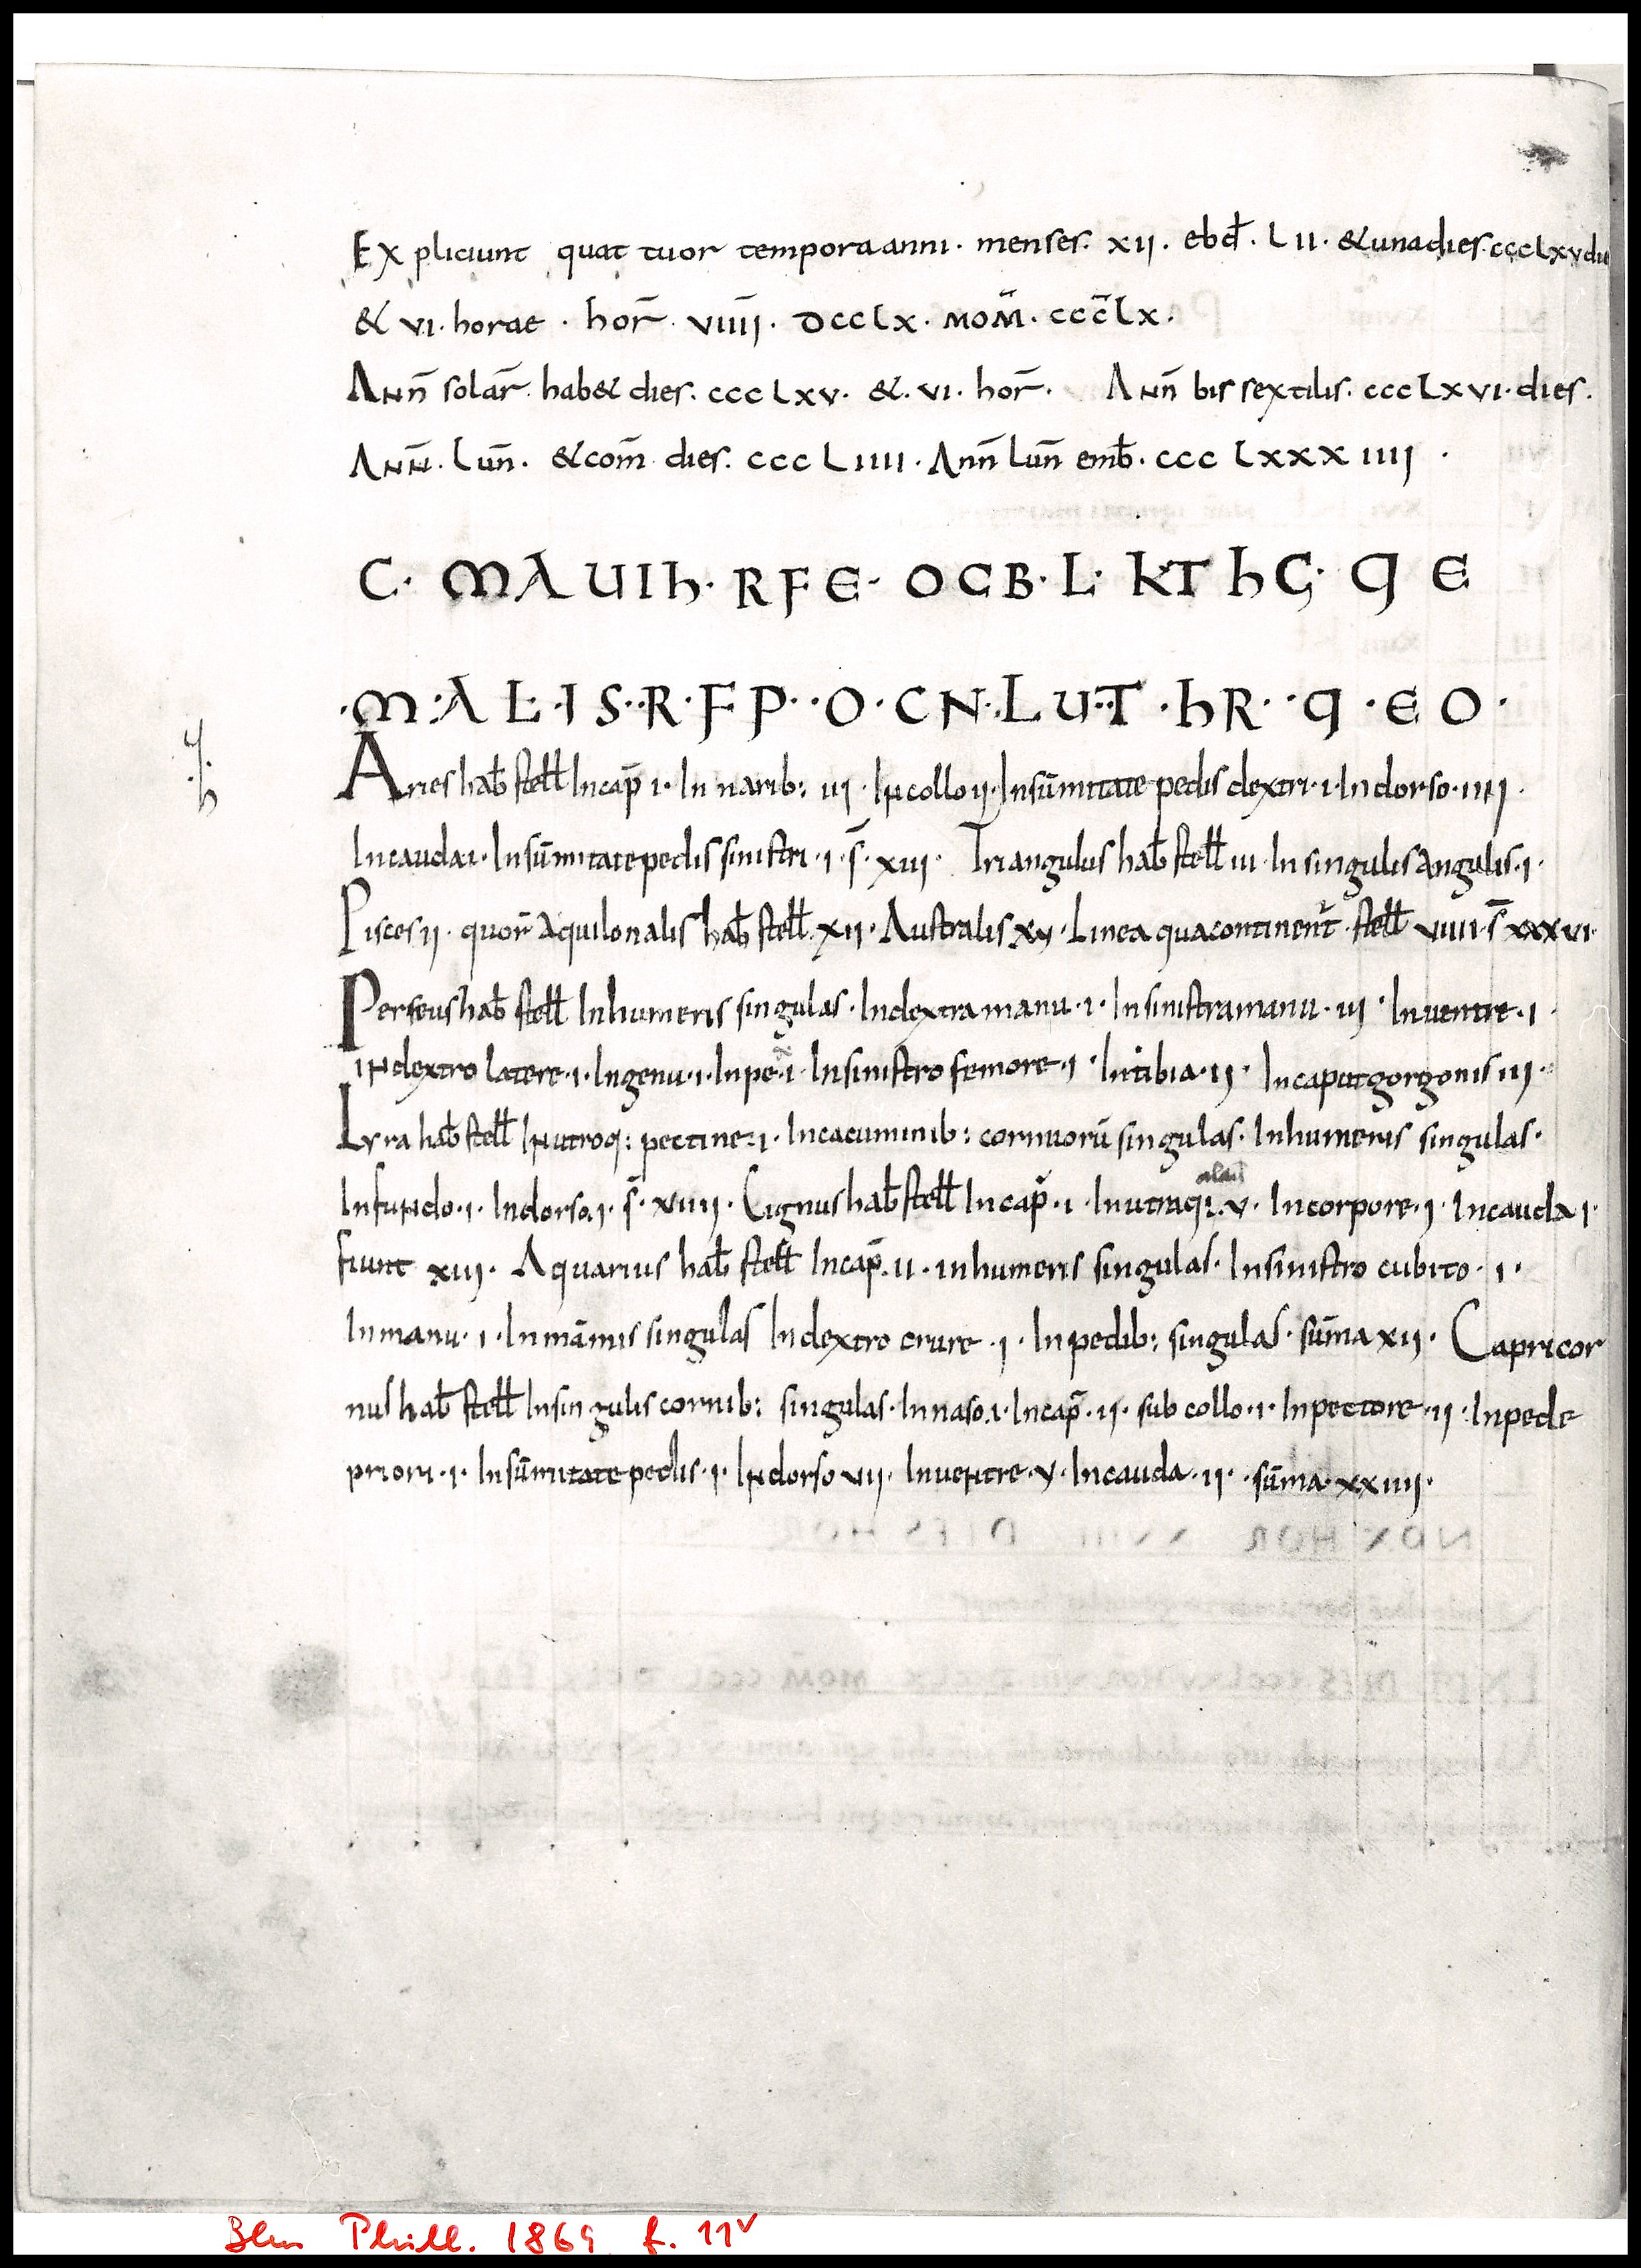 Expliciunt quattuor tempora anni · menses · xii · ebđ · Lii · & una dies · cccLxv die
& vi · horae · hor̄ · viiii · DCCLX · MOM̄ · ccc̄Lx ·
Ann̄ solar̄ · hab& dies · cccLxv · & · vi · hor̄ · Ann̄ bissextilis · cccLxvi · dies ·
Ann̄ · Lun̄ · & com̄ dies · cccLiiii · Ann̄ lun̄ emb̄ · cccLxxxiiii ·
C · MAUIh · RFE · OGB · L · KThG · q E
· M · A L · I S · R · F P · · O · C N · L U · T · h R · · q · E O ·
Aries hab̄ stell̄ In cap̄ i · In narib: iii · In collo ii · In sūmitate pedis dextri · i · In dorso · iiii ·
In cauda i · In sūmitate pedis sinistri · i · s̄ · xiii · Triangulus hab̄ stell̄ iii · In singulis angulis · i ·
Pisces ii · quor̄ aquilonalis hab̄ stell̄ · xii · Australis xv · Linea qua continent̄ · stell̄ viiii · s̄ xxxvi ·
Perseus hab̄ stell̄ In humeris singulas · In dextra manu · i · In sinistra manu · iii · In uentre · i
in dextro latere · i · In genu · i · In pe · i · In sinistro femore · i · In tibia · ii · In caput gorgonis iii ·
Lyra hab̄ stell̄ In utroq: pectine · i · In cacuminib: cornuorū singulas · In humeris singulas ·
In fundo · i · In dorso · i · s̄ · viiii · Cignus hab̄ stell̄ In cap̄ · i · In utraq: ala · v · In corpore · i · In cauda i ·
fiunt xiii · Aquarius hab̄ stell̄ In cap̄ · ii · in humeris singulas · In sinistro cubito · i ·
In manu · i · In māmis singulas In dextro crure · i · In pedib: singulas · sūma xii · Capricor
nus hab̄ stell̄ In singulis cornib: singulas · In naso · i · In cap̄ · ii · sub collo · i · In pectore · ii · In pede
priori · i · In sūmitate pedis · i · In dorso vii · In uentre · v · In cauda · ii · sūma · xxiiii ·
Bln Phill. 1869 f. 11v